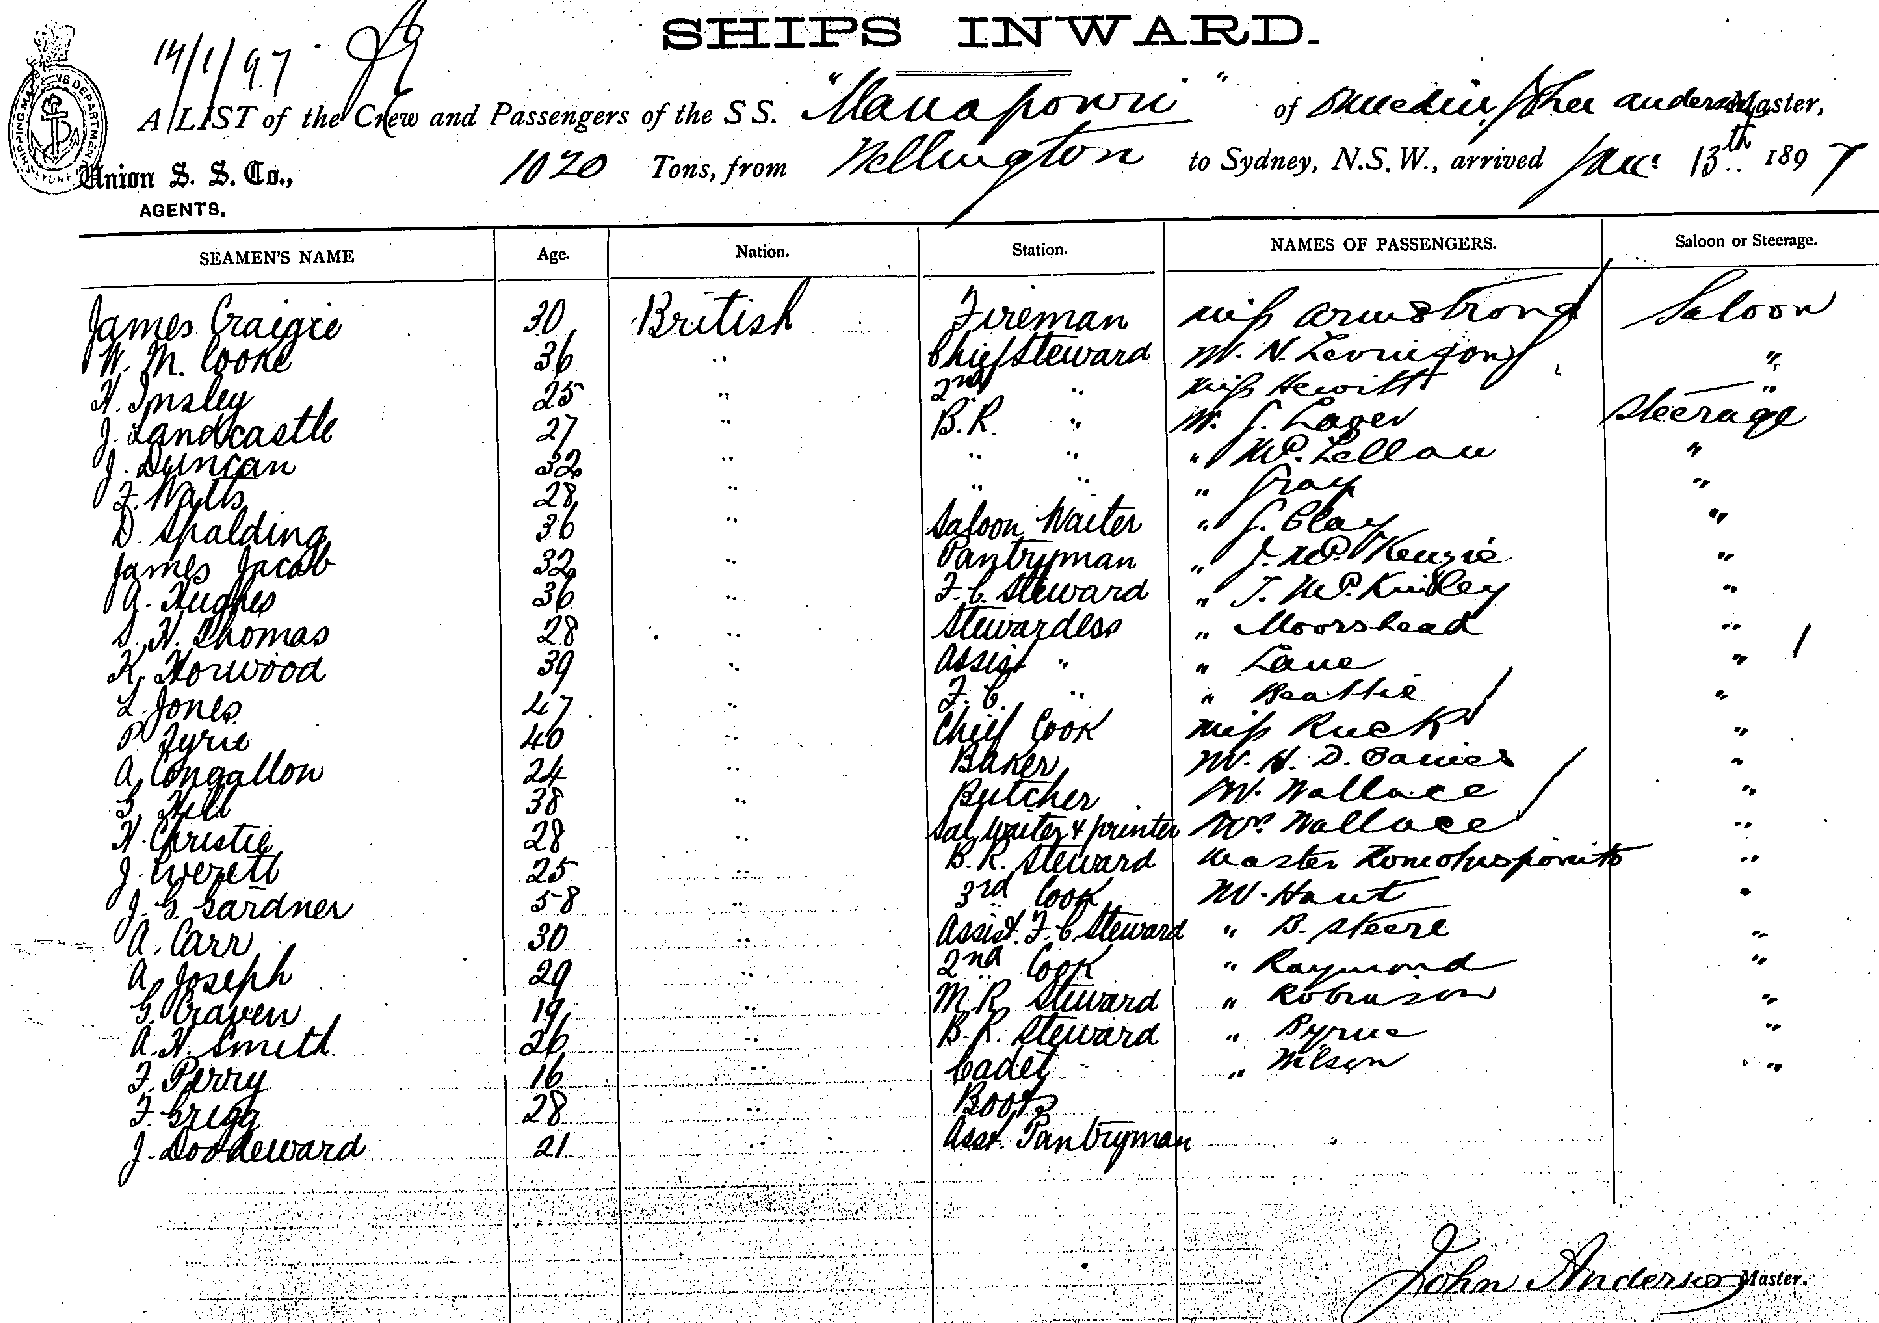 14/1/97
SHIPS INWARD.
A LIST of the Crew and Passengers of the S S. "Manapouri" of Dunedin, John Anderson Master,
1020 Tons, from Wellington to Sydney, N.S.W., arrived Jan: 13th 1897
Union S. S. Co.,
AGENTS.
SEAMEN'S NAME Age. Nation. Station. NAMES OF PASSENGERS. Saloon or Steerage.
James Craigie 30 British Fireman Miss Armstrong Saloon
W. M. Cooke 36 " Chief Steward Mr. N. "
H. Insley 25 " 2nd " Miss Hewitt "
J. Landcastle 27 " B.R. " Mr. J. Steerage
J. Duncan 32 " " " " McLellan "
F. Watts 28 " " " " Gray "
D. Spalding 36 " Saloon Waiter " J. Clay "
James Jacob 32 " Pantryman " J. McKenzie "
A. Hughes 36 " F.C. Steward " T. McKinley "
S. H. Thomas 28 " Stewardess " Moorshead "
K. Horwood 39 " Assist " " Lane "
L. Jones 47 " F.C. " " Beattie "
P. Fyrie 40 " Chief Cook Miss Ruck "
A. Congallon 24 " Baker Mr. H. D. Davies "
G. Hill 38 " Butcher Mr. Wallace "
H. Christie 28 " Sal. Waiter & printer Mrs Wallace "
J. Everett 25 " B.R. Steward Master "
J. G. Gardner 58 " 3rd Cook Mr. "
A. Carr 30 " Assist. F.C Steward " B. Steere "
A. Joseph 29 " 2nd Cook " Raymond "
G. Craven 19 " M.R. Steward " Robinson "
A. H. Smith 26 " B.R. Steward " Pyrue "
F. Perry 16 " Cadet " Wilson "
F. Grigg 28 " Boots
J. Doodeward 21 " Asst. Pantryman
John Anderson Master.